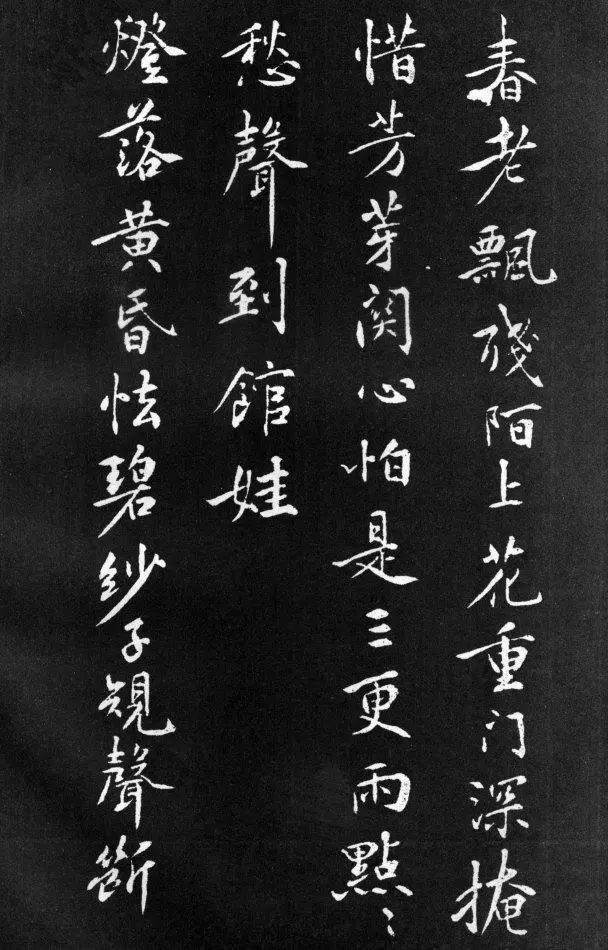 春老飄残陌上花重门深掩
惜芳芽関心怕是三更雨點〻
愁聲到館娃
燈落黄昏怯碧紗子規聲斷